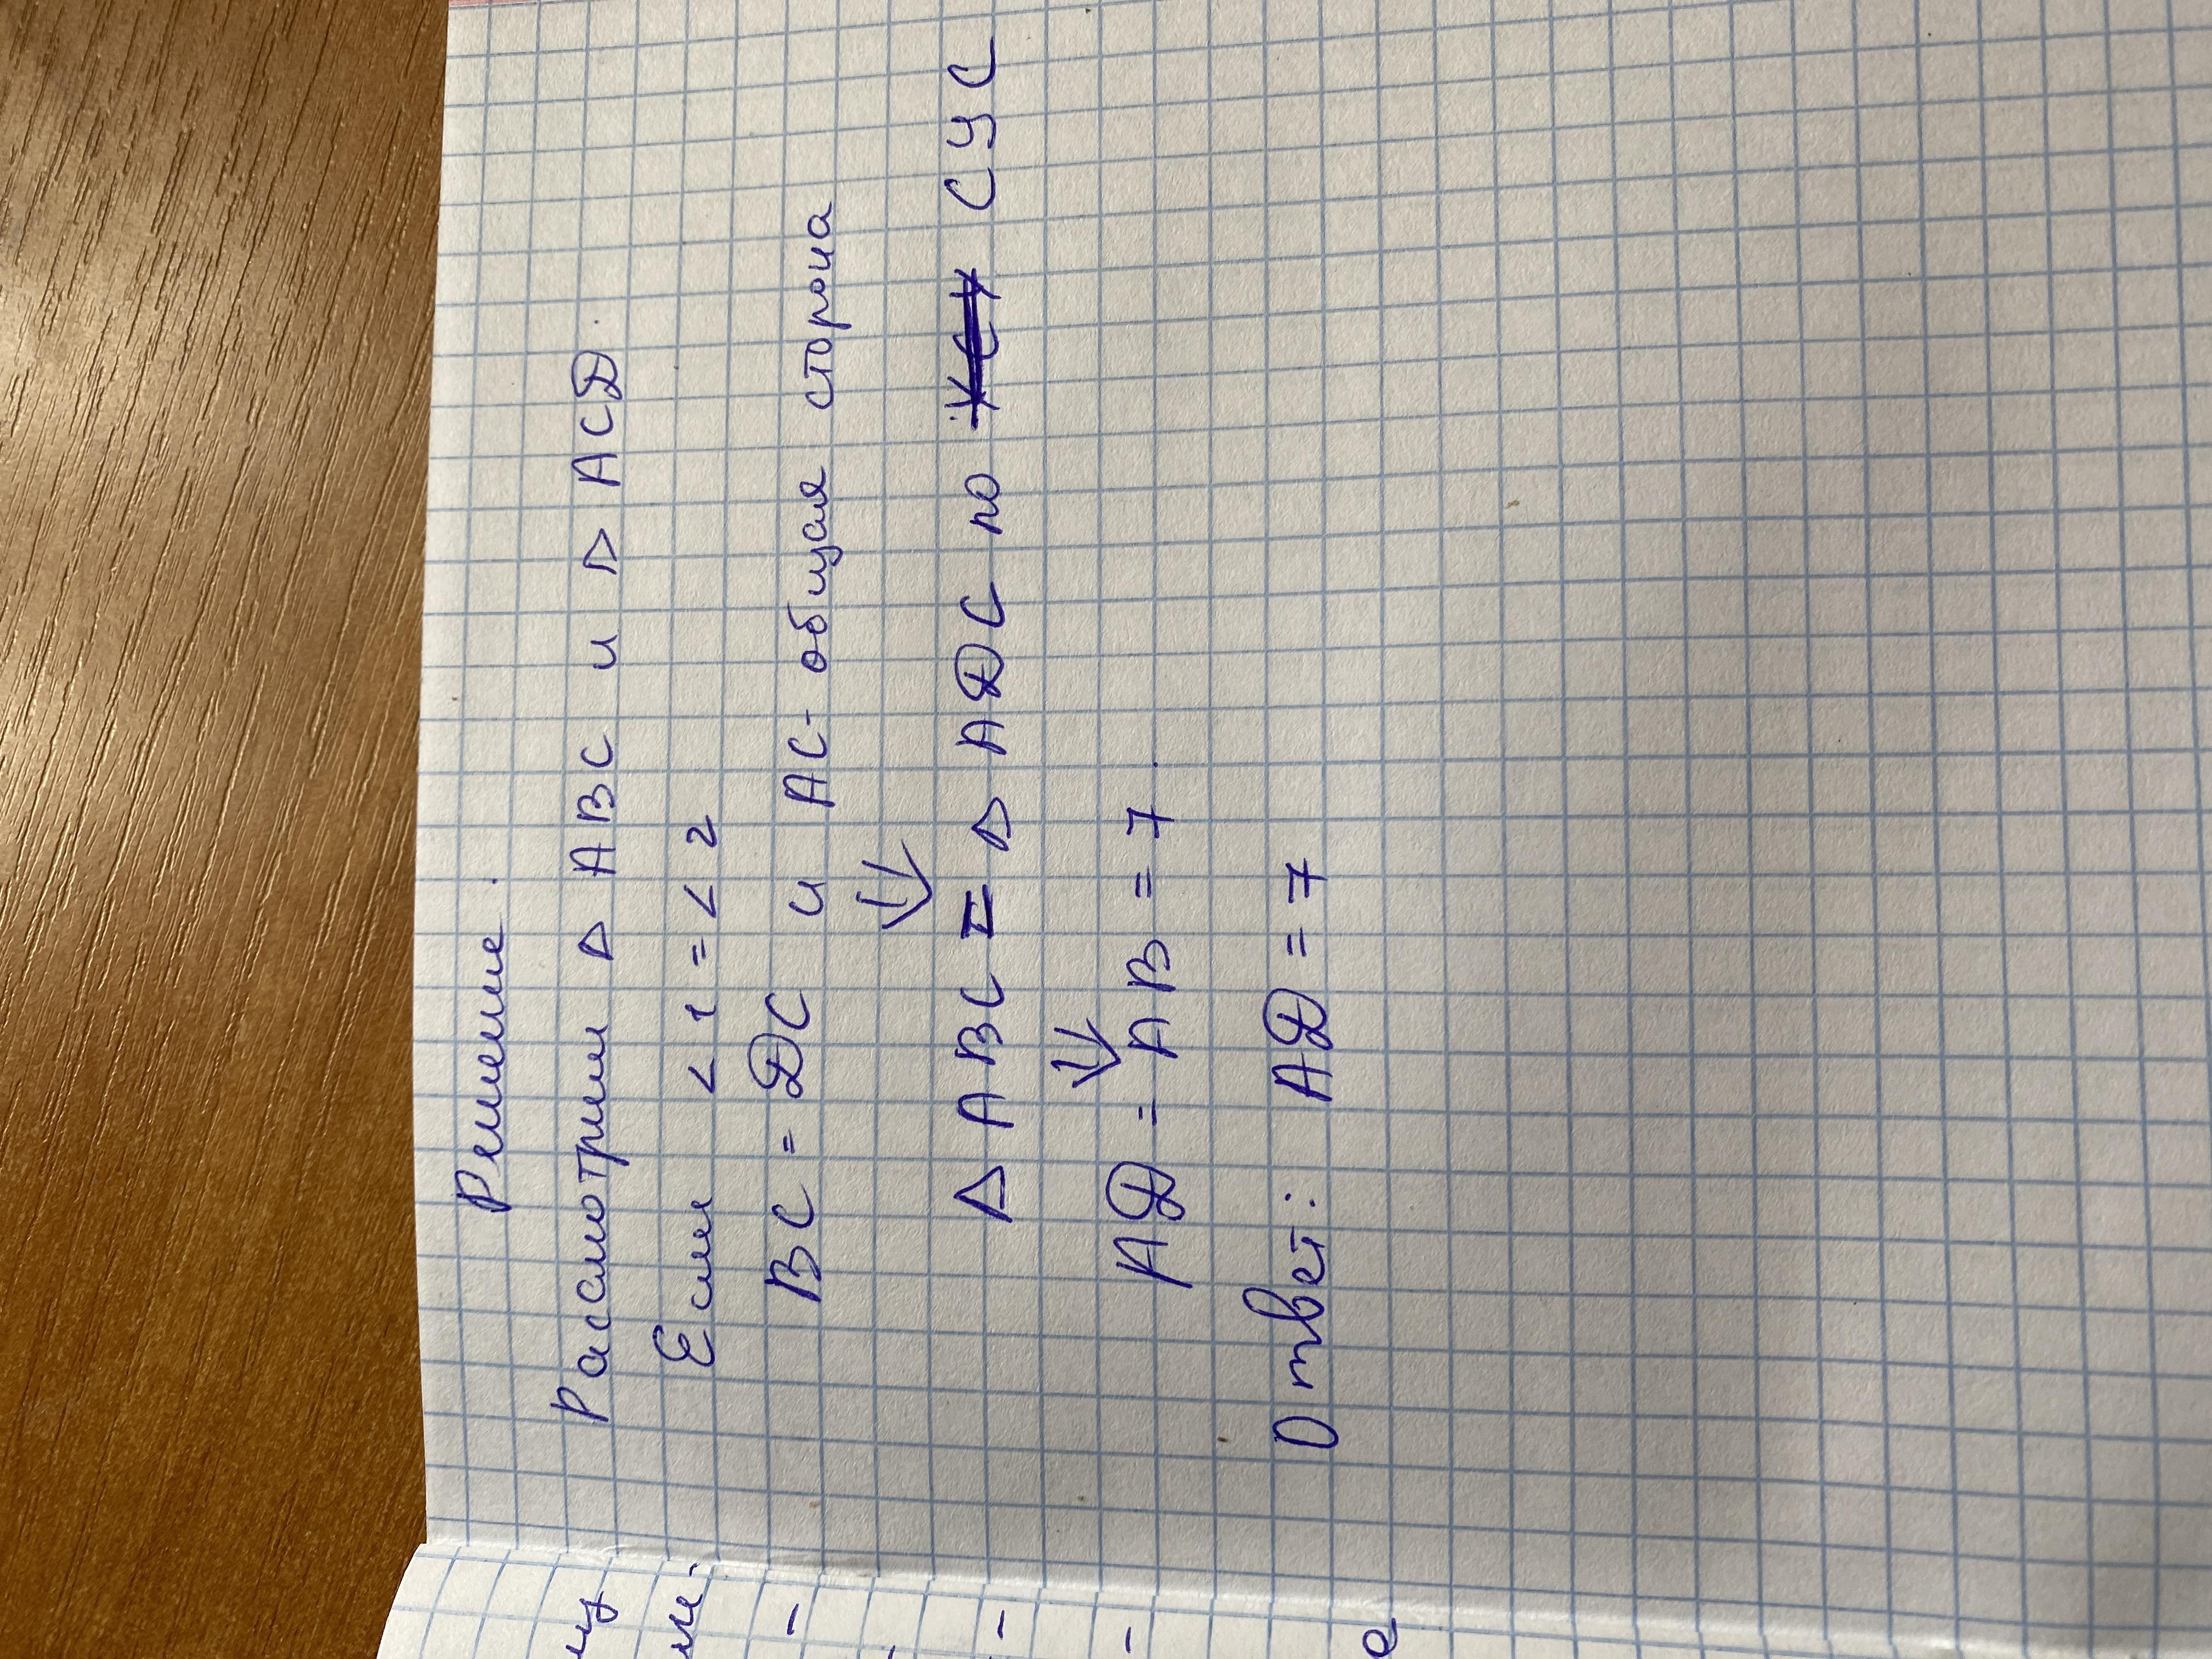 Решение.
Расмотрим △ ABC и △ ACD
Если <1 = <2
BC = DC и AC - общая сторона
⇓
△ ABC = △ ADC по СУС
⇓
AD = AB = 7.
Ответ: AD = 7